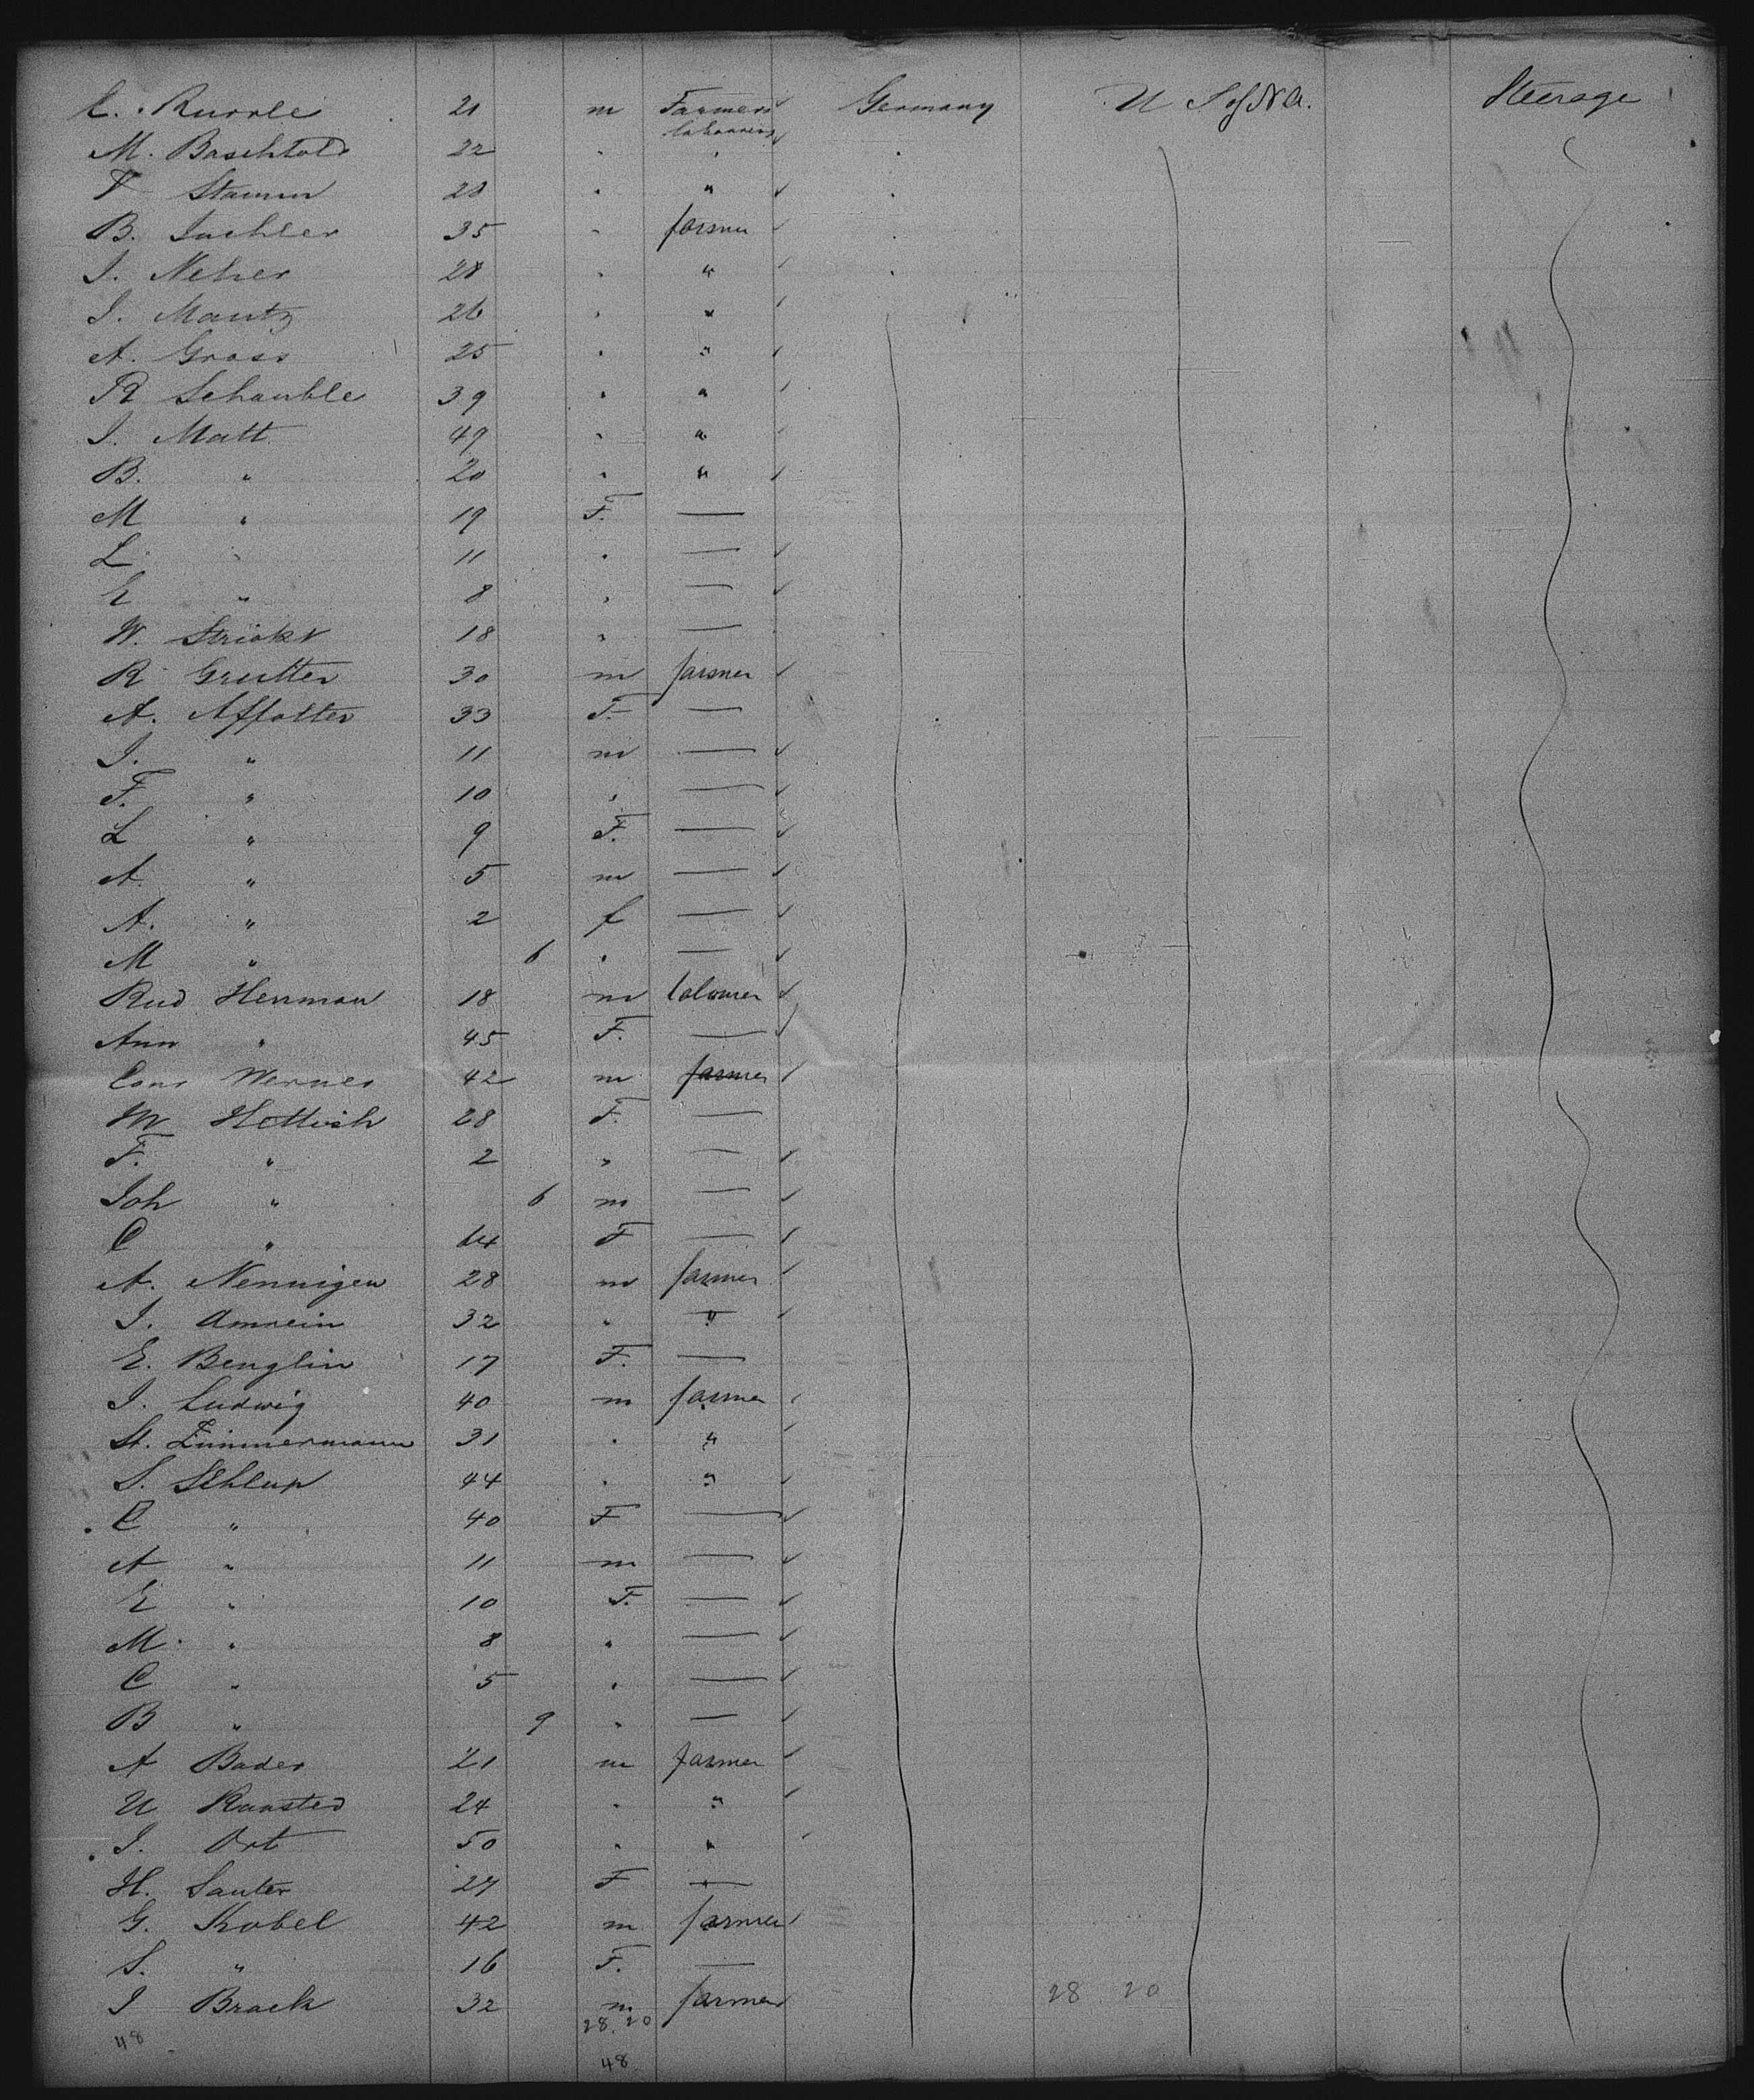 C. Rurrle 21 m Farmers Germany U S of N A. Steerage
labourers
M. Baschtold 22 " "
F Stamm 28 " "
B. Juchler 35 " farmer
J. Neher 28 " "
J. Mantz 26 " "
A. Gross 25 " "
R Schauble 39 " "
J. Matt 49 " "
B. " 20 " "
M " 19 F. —
L " 11 " —
E " 8 " —
W. Strickr 18 " —
R Grutter 30 m farmer
A. Affolter 33 F. —
J. " 11 m —
F. " 10 " —
L " 9 F. —
A. " 5 m —
A. " 2 f —
M " 6 " —
Rud Herrman 18 m labourer
Ann " 45 F. —
Conr Werner 42 m farmer
M Hettich 28 F. —
F. " 2 " —
Joh " 6 m —
C " 64 F —
A. Nennigen 28 m farmer
J. Amrein 32 " "
E. Benglin 17 F. —
J. Ludwig 40 m farmer
St. Zimmermann 31 " "
S. Schlup 44 " "
C " 40 F —
A " 11 m —
E " 10 F. —
M. " 8 " —
C " 5 " —
B " 9 " —
A Bader 21 m farmer
U Ransted 24 " "
J. Ort 50 " "
H. Sauter 27 F —
G. Kobel 42 m farmer
S. " 16 F. —
J Brack 32 m farmer 28 20
48 28. 20
48